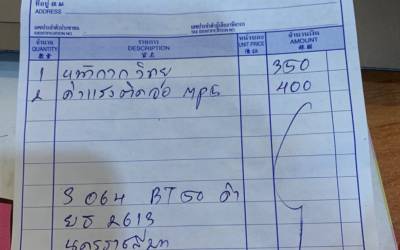 ที่อยู่
ADDRESS
เลขประจำตัวประชาชน
เลขประจำตัวผู้เสียภาษีอากร
จำนวน รายการ หน่วยละ จำนวนเงิน
QUANTITY DESCRIPTION UNIT PRICE AMOUNT
1 หน้ากากวิทยุ 350
2 ค่าแรงติดจอ MP5 400
3064 BT50 ดำ
ยธ 2613
นครราชสีมา